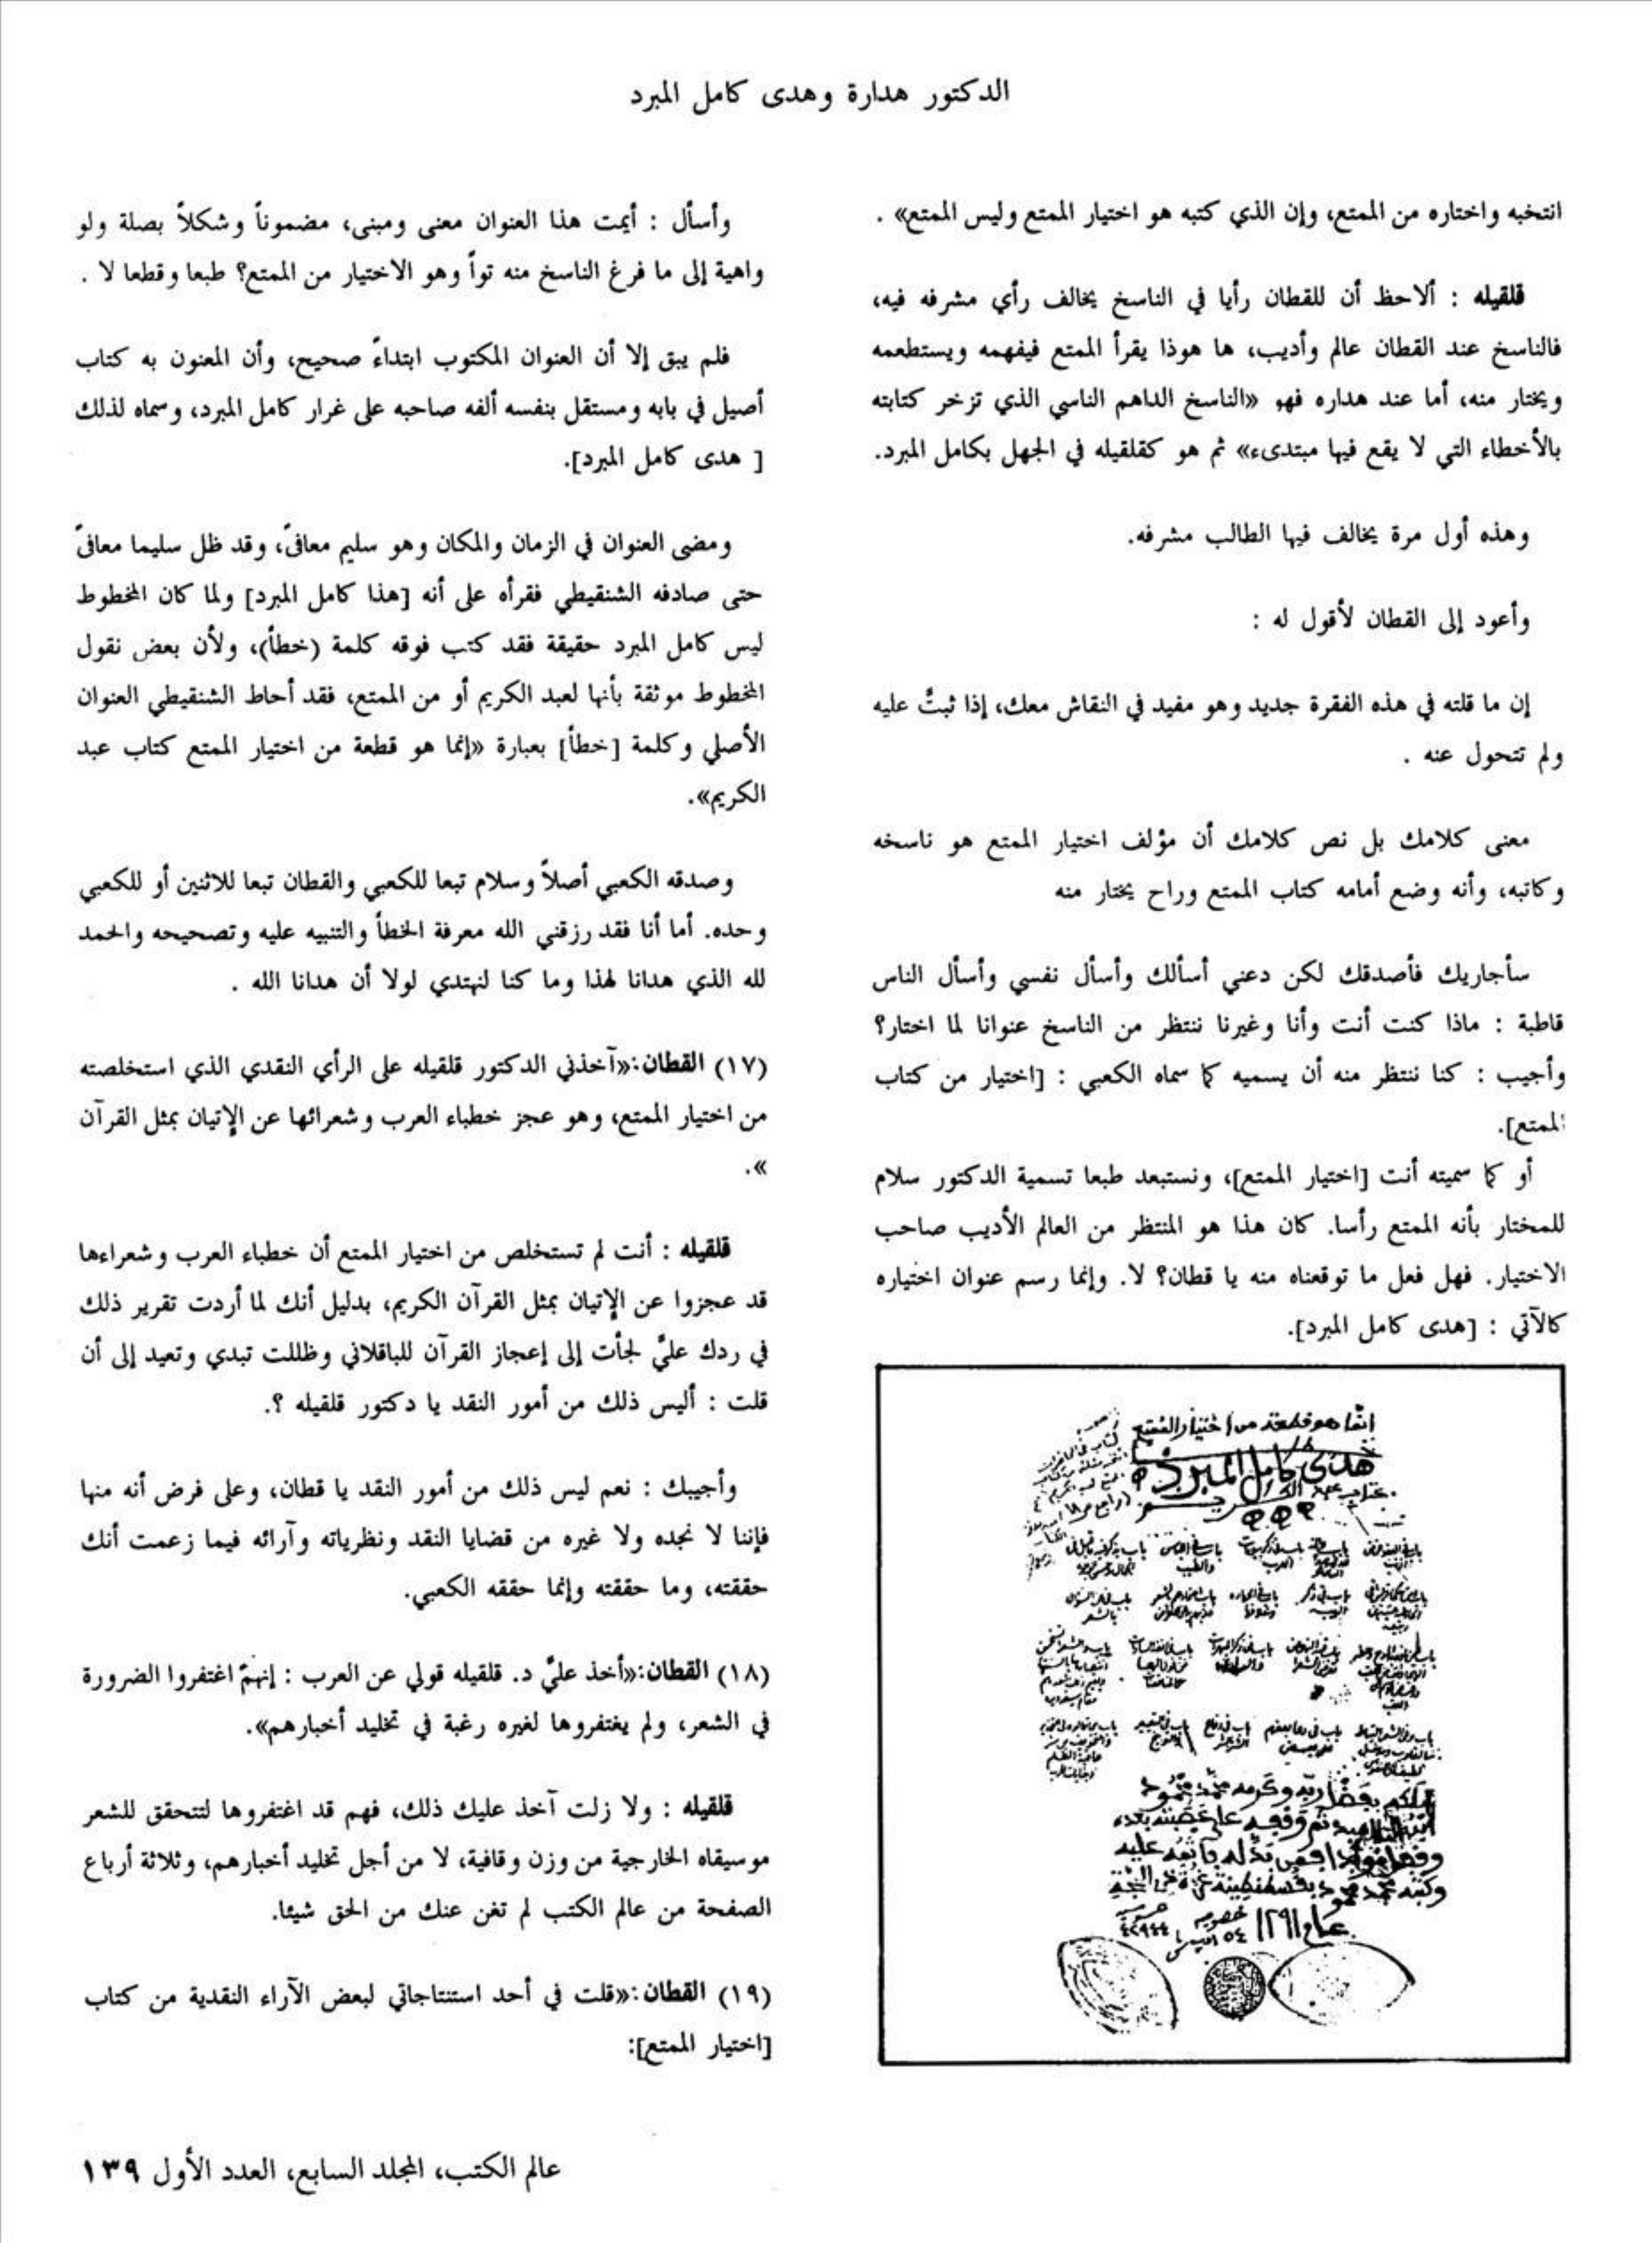 الدكتور هدارة وهدى كامل المبرد
انتخبه واختاره من الممتع، وإن الذي كتبه هو اختيار الممتع وليس الممتع» .
قلقيله : ألاحظ أن للقطان رأيا في الناسخ يخالف رأي مشرفه فيه،
فالناسخ عند القطان عالم وأديب، ها هوذا يقرأ الممتع فيفهمه ويستطعمه
ويختار منه، أما عند هداره فهو «الناسخ الداهم الناسي الذي تزخر كتابته
بالأخطاء التي لا يقع فيها مبتدىء» ثم هو كقلقيله في الجهل بكامل المبرد.
وهذه أول مرة يخالف فيها الطالب مشرفه.
وأعود إلى القطان لأقول له :
إن ما قلته في هذه الفقرة جديد وهو مفيد في النقاش معك، إذا ثبتَّ عليه
ولم تتحول عنه .
معنى كلامك بل نص كلامك أن مؤلف اختيار الممتع هو ناسخه
وكاتبه، وأنه وضع أمامه كتاب الممتع وراح يختار منه
سأجاريك فأصدقك لكن دعني أسألك وأسأل نفسي وأسأل الناس
قاطبة : ماذا كنت أنت وأنا وغيرنا ننتظر من الناسخ عنوانا لما اختار؟
وأجيب : كنا ننتظر منه أن يسميه كما سماه الكعبي : [اختيار من كتاب
الممتع].
أو كما سميته أنت [اختيار الممتع]، ونستبعد طبعا تسمية الدكتور سلام
للمختار بأنه الممتع رأسا. كان هذا هو المنتظر من العالم الأديب صاحب
الاختيار. فهل فعل ما توقعناه منه يا قطان؟ لا. وإنما رسم عنوان اختياره
كالآتي : [هدى كامل المبرد].
انما هو قطعة من اختيار الممتع
هدى كامل المبرد
عام ١٢٩١
وأسأل : أيمت هذا العنوان معنى ومبنى، مضموناً وشكلاً بصلة ولو
واهية إلى ما فرغ الناسخ منه تواً وهو الاختيار من الممتع؟ طبعا وقطعا لا .
فلم يبق إلا أن العنوان المكتوب ابتداءً صحيح، وأن المعنون به كتاب
أصيل في بابه ومستقل بنفسه ألفه صاحبه على غرار كامل المبرد، وسماه لذلك
[ هدى كامل المبرد].
ومضى العنوان في الزمان والمكان وهو سليم معافىً، وقد ظل سليما معافىً
حتى صادفه الشنقيطي فقرأه على أنه [هذا كامل المبرد] ولما كان المخطوط
ليس كامل المبرد حقيقة فقد كتب فوقه كلمة (خطأ)، ولأن بعض نقول
المخطوط موثقة بأنها لعبد الكريم أو من الممتع، فقد أحاط الشنقيطي العنوان
الأصلي وكلمة [خطأ] بعبارة «إنما هو قطعة من اختيار الممتع كتاب عبد
الكريم».
وصدقه الكعبي أصلاً وسلام تبعا للكعبي والقطان تبعا للاثنين أو للكعبي
وحده. أما أنا فقد رزقني الله معرفة الخطأ والتنبيه عليه وتصحيحه والحمد
لله الذي هدانا لهذا وما كنا لنهتدي لولا أن هدانا الله .
(١٧) القطان:«آخذني الدكتور قلقيله على الرأي النقدي الذي استخلصته
من اختيار الممتع، وهو عجز خطباء العرب وشعرائها عن الإتيان بمثل القرآن
».
قلقيله : أنت لم تستخلص من اختيار الممتع أن خطباء العرب وشعراءها
قد عجزوا عن الإتيان بمثل القرآن الكريم، بدليل أنك لما أردت تقرير ذلك
في ردك عليَّ لجأت إلى إعجاز القرآن للباقلاني وظللت تبدي وتعيد إلى أن
قلت : أليس ذلك من أمور النقد يا دكتور قلقيله ؟.
وأجيبك : نعم ليس ذلك من أمور النقد يا قطان، وعلى فرض أنه منها
فإننا لا نجده ولا غيره من قضايا النقد ونظرياته وآرائه فيما زعمت أنك
حققته، وما حققته وإنما حققه الكعبي.
(١٨) القطان:«أخذ عليَّ د. قلقيله قولي عن العرب : إنهمّ اغتفروا الضرورة
في الشعر، ولم يغتفروها لغيره رغبة في تخليد أخبارهم».
قلقيله : ولا زلت آخذ عليك ذلك، فهم قد اغتفروها لتتحقق للشعر
موسيقاه الخارجية من وزن وقافية، لا من أجل تخليد أخبارهم، وثلاثة أرباع
الصفحة من عالم الكتب لم تغن عنك من الحق شيئا.
(١٩) القطان:«قلت في أحد استنتاجاتي لبعض الآراء النقدية من كتاب
[اختيار الممتع]:
عالم الكتب، المجلد السابع، العدد الأول ١٣٩